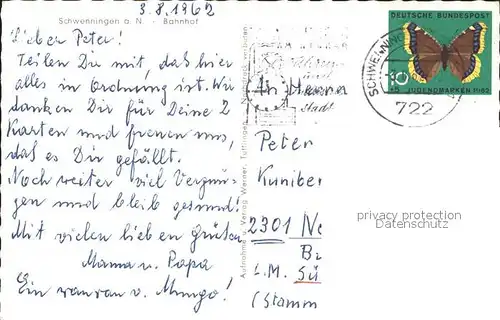 3.8.1962
Schwenningen a. N. - Bahnhof
Lieber Peter!
Teilen Dir mit, daß hier
alles in Ordnung ist. Wir
danken Dir für Deine 2
Karten und freuen uns,
daß es Dir gefällt.
Noch weiter viel Vergnü-
gen und bleib gesund!
Mit vielen lieben Grüßen
Mama u. Papa
Ein wauwau v. Mungo!
Aufnahme u. Verlag Werner, Tuttlingen Nachdruck verboten
DEUTSCHE BUNDESPOST
10
+5
JUGENDMARKEN 1962
SCHWENNINGEN
722
Stadt
An Herrn
Peter
Kuniber
2301 Ne
Bz
L.M. Sü
(Stamm
privacy protection
Datenschutz